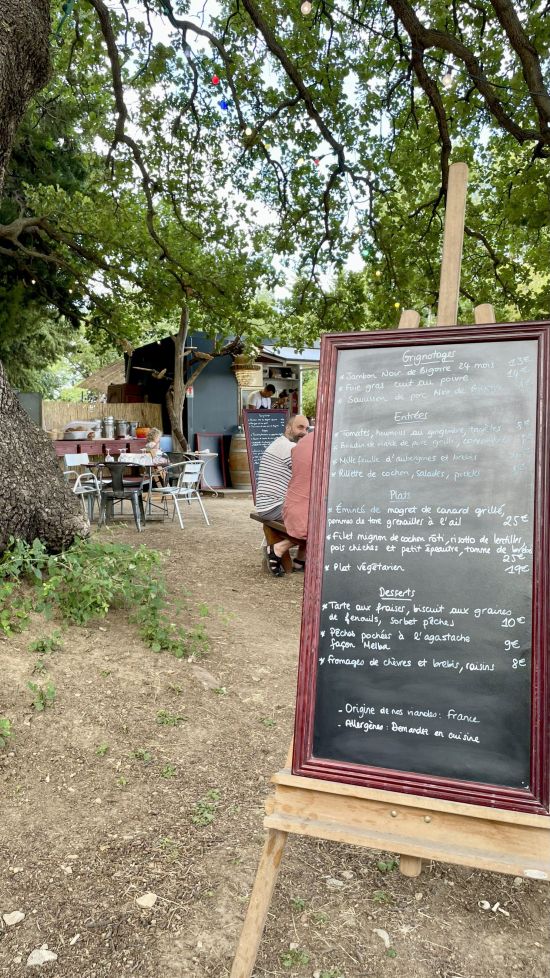 Grignotages
* Jambon Noir de Bigorre 24 mois 13€
* Foie gras cuit au poivre 14€
* Saucisson de porc Noir de
Entrées
* Tomates, houmous au gingembre,
* Boudin de porc grillé,
* Mille feuille d'aubergines et brebis
* Rillette de cochon, salades, pickles
Plats
* Émincés de magret de canard grillé,
pommes de terre grenailles à l'ail 25€
* Filet mignon de cochon rôti, risotto de lentilles,
pois chiches et petit épeautre, tomme de brebis
25€
* Plat végétarien 19€
Desserts
* Tarte aux fraises, biscuit aux graines
de fenouils, sorbet pêches 10€
* Pêches pochées à l'agastache
façon Melba 9€
* Fromages de chèvres et brebis, raisins 8€
- Origine de nos viandes : France
- Allergènes : Demandez en cuisine